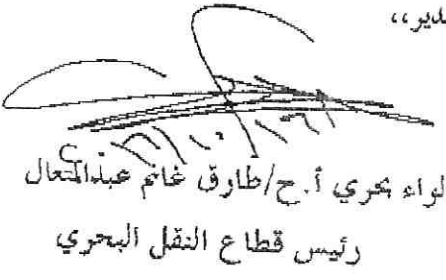 لواء بحري أ.ح/طارق غانم عبدالمتعال
رئيس قطاع النقل البحري